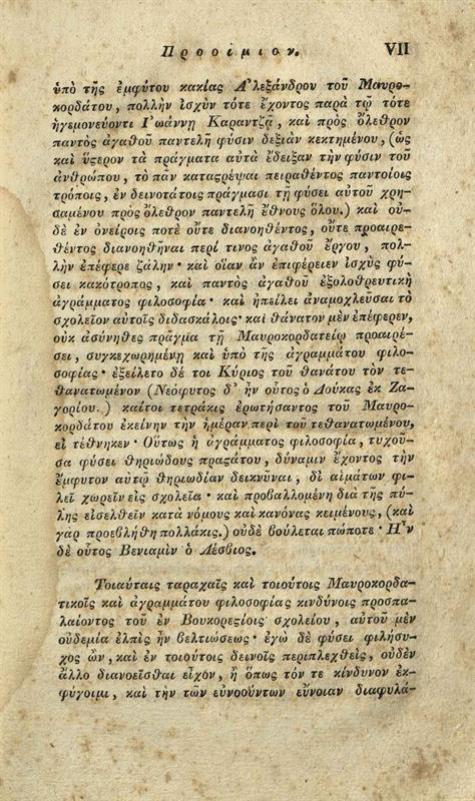 Προοίμιον. VII
ὑπὸ τῆς ἐμφύτου κακίας Ἀ'λεξάνδρου τοῦ Μαυρο-
κορδάτου, πολλὴν ἰσχὺν τότε ἔχοντος παρὰ τῷ τότε
ἡγεμονεύοντι Ἰ'ωάννῃ Καραντζᾷ, καὶ πρὸς ὄλεθρον
παντὸς ἀγαθοῦ παντελῆ φύσιν δεξιὰν κεκτημένου, (ὡς
καὶ ὕϛερον τὰ πράγματα αὐτὰ ἔδειξαν τὴν φύσιν τοῦ
ἀνθρώπου, τὸ πὰν καταϛρέψαι πειραθέντος παντοίοις
τρόποις, ἐν δεινοτάτοις πράγμασι τῇ φύσει αὐτοῦ χρη-
σαμένου πρὸς ὄλεθρον παντελῆ ἔθνους ὅλου.) καὶ οὐ-
δὲ ἐν ὀνείροις ποτὲ οὔτε διανοηθέντος, οὔτε προαιρε-
θέντος διανοηθῆναι περί τινος ἀγαθοῦ ἔργου, πολ-
λὴν ἐπέφερε ζάλην· καὶ οἵαν ἂν ἐπιφέρειεν ἰσχὺς φύ-
σει κακότροπος, καὶ παντὸς ἀγαθοῦ ἐξολοθρευτικὴ
ἀγράμματος φιλοσοφία· καὶ ἠπείλει ἀναμοχλεῦσαι τὸ
σχολεῖον αὐτοῖς διδασκάλοις· καὶ θάνατον μὲν ἐπέφερεν,
οὐκ ἀσύνηθες πρᾶγμα τῇ Μαυροκορδατείῳ προαιρέ-
σει, συγκεχωρημένῃ καὶ ὑπὸ τῆς ἀγραμμάτου φιλο-
σοφίας· ἐξείλετο δέ τοι Κύριος τοῦ θανάτου τὸν τε-
θανατωμένον (Νεόφυτος δ' ἦν οὗτος ὁ Δούκας ἐκ Ζα-
γορίου.) καίτοι τετράκις ἐρωτήσαντος τοῦ Μαυρο-
κορδάτου ἐκείνην τὴν ἡμέραν περὶ τοῦ τεθανατωμένου,
εἰ τέθνηκεν· Οὕτως ἡ ἀγράμματος φιλοσοφία, τυχοῦ-
σα φύσει θηριώδους προϛάτου, δύναμιν ἔχοντος τὴν
ἔμφυτον αυτῷ θηριωδίαν δεικνῦναι, δι αἱμάτων φι-
λεῖ χωρεῖν εἰς σχολεῖα· καὶ προβαλλομένη διὰ τῆς πύ-
λης εἰσελθεῖν κατὰ νόμους καὶ κανόνας κειμένους, (καὶ
γὰρ προεβλήθη πολλάκις.) οὐδὲ βούλεται πώποτε· Ἦ'ν
δὲ οὗτος Βενιαμὶν ὁ Λέσβιος.
Τοιαύταις ταραχαῖς καὶ τοιούτοις Μαυροκορδα-
τικοῖς καὶ ἀγραμμάτου φιλοσοφίας κινδύνοις προσπα-
λαίοντος τοῦ ἐν Βουκορεϛίοις σχολείου, αὐτοῦ μὲν
οὐδεμία ἐλπὶς ἦν βελτιώσεως· ἐγὼ δὲ φύσει φιλήσυ-
χος ὢν, καὶ ἐν τοιούτοις δεινοῖς περιπλεχθεὶς, οὐδὲν
ἄλλο διανοεῖσθαι εἶχον, ἢ ὅπως τόν τε κίνδυνον ἐκ-
φύγοιμι, καὶ τὴν τῶν εὐνοούντων εὔνοιαν διαφυλά-